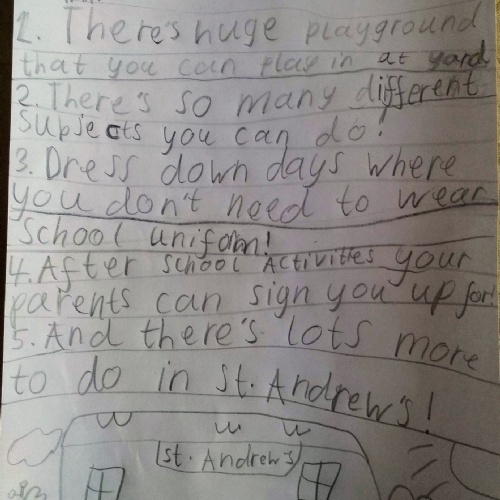 1. There's huge playground
that you can play in at yard
2. There's so many different
Subjects you can do!
3. Dress down days where
you don't need to wear
School uniform!
4. After school Activities your
parents can sign you up for!
5. And there's lots more
to do in St. Andrew's!
St. Andrew's